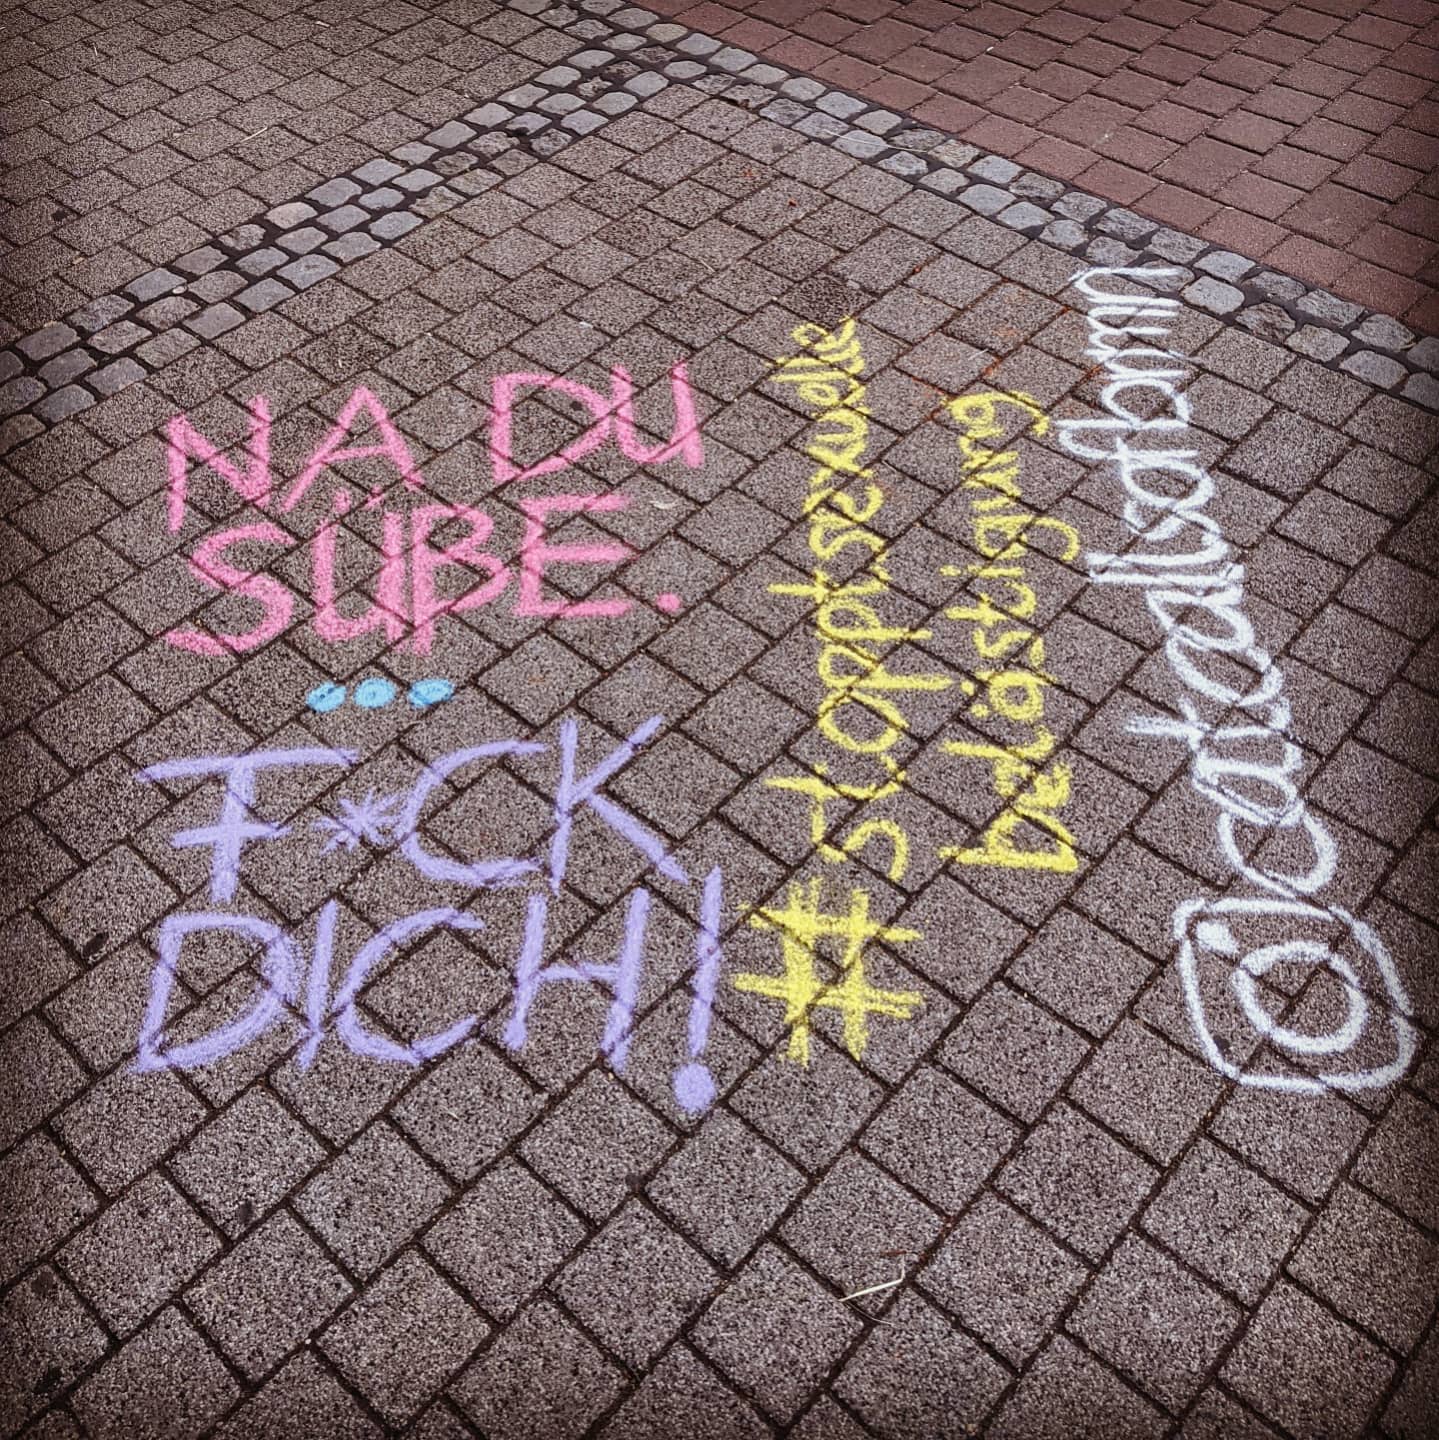 NA DU
SÜßE.
...
F*CK
DICH!
#stopptsexuelle
belästigung
catcallsofbonn